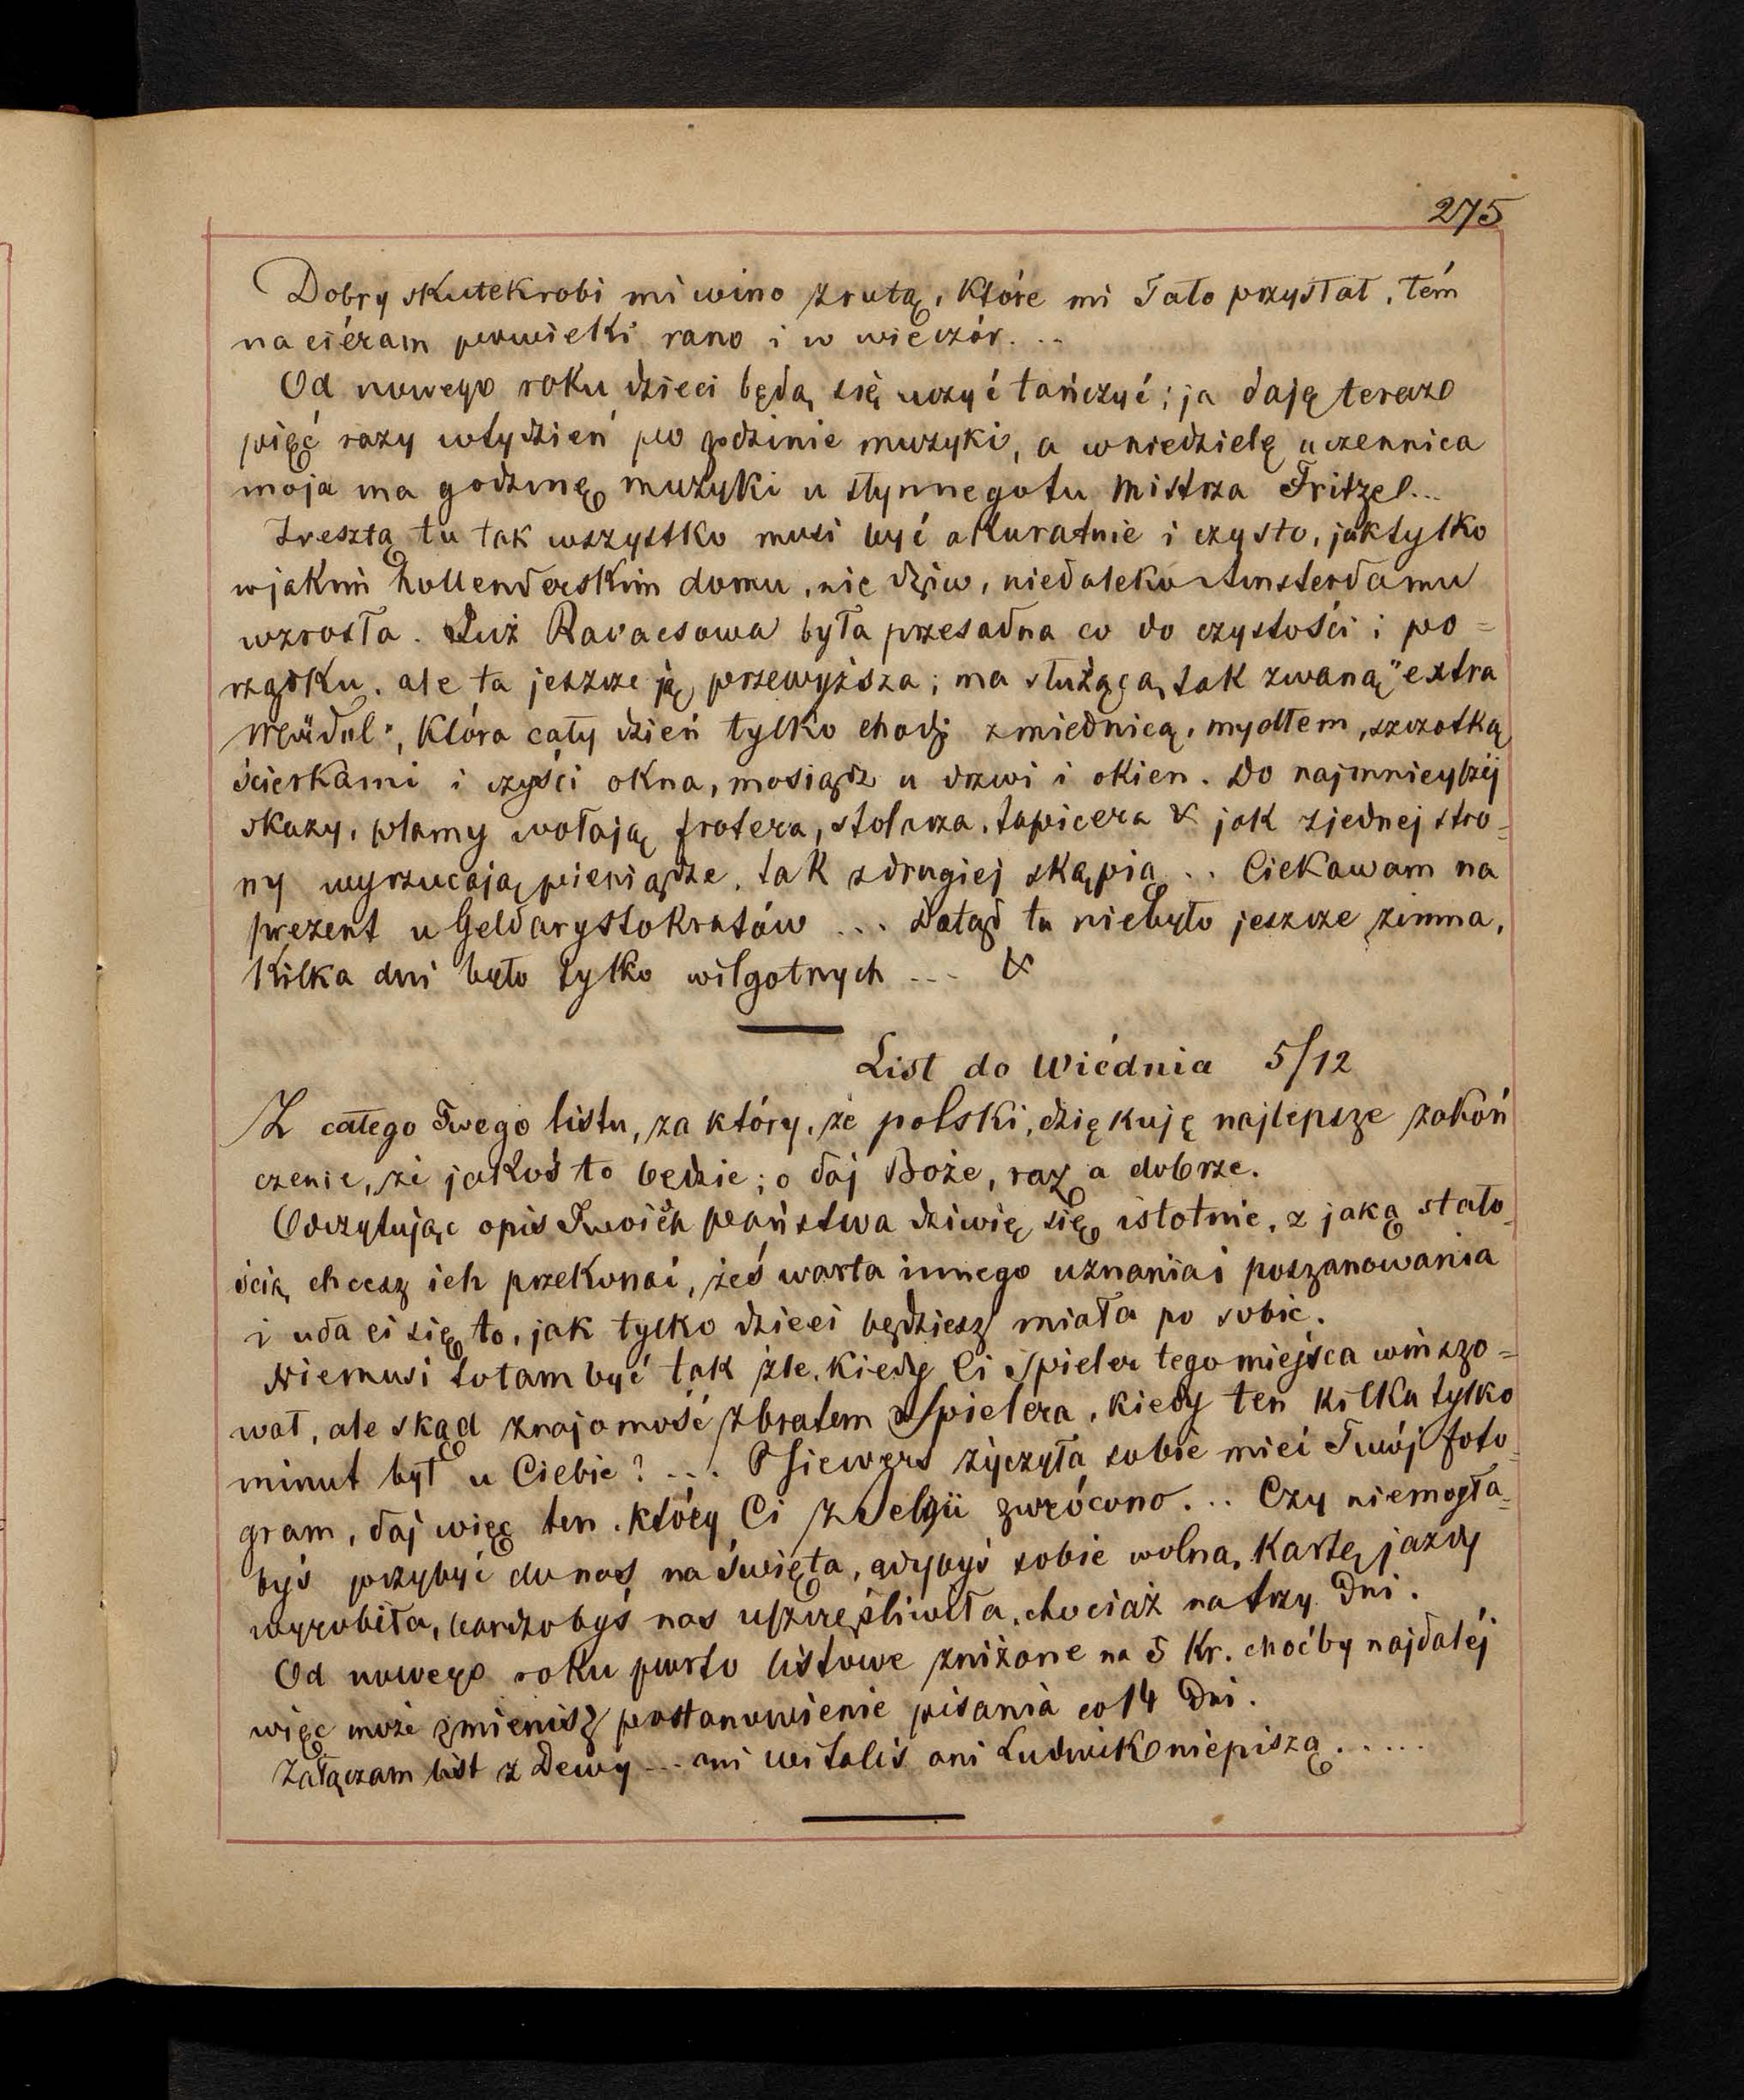 275
Dobry skutek robi mi wino z rutą, które mi Tato przysłał, tém
nacieram powieki rano i w wieczór...
Od nowego roku dzieci będą się uczyć tańczyć; ja daję teraz
pięć razy w tydzień po godzinie muzyki, a w niedzielę uczennica
moja ma godzinę muzyki u słynnego tu Mistrza Fritzel...
Zresztą tu tak wszystko musi być akuratnie i czysto, jak tylko
w jakim hollenderskim domu, nie dziw, niedaleko Amsterdamu
wzrosła. Już Ravacsowa była przesadna co do czystości i po=
rządku, ale ta jeszcze ją przewyższa; ma służącą, tak zwaną "extra
Mädel", która cały dzień tylko chodzi z miednicą, mydłem, szczotką,
ścierkami i czyści okna, mosiądz u drzwi i okien. Do najmniejszéj
skazy, plamy wołają frotera, stolarza, tapicera & jak z jednej stro=
ny wyrzucają pieniądze, tak z drugiej skąpią... Ciekawam na
prezent u Geldarystokratów ... Dotąd tu niebyło jeszcze zimna,
kilka dni było tylko wilgotnych --- &
List do Wiédnia 5/12
Z całego Twego listu, za który, że polski, dziękuję najlepsze zakoń
czenie, że jakoś to będzie; o daj Boże, raz a dobrze.
Odczytując opis Twoich państwa dziwię się istotnie, z jaką stało=
ścią chcesz ich przekonać, żeś warta innego uznania i poszanowania
i uda ci się to, jak tylko dzieci będziesz miała po sobie.
Niemusi to tam być tak źle, kiedy Ci Spieler tego miejsca winszo=
wał, ale skąd znajomość z bratem Spielera, kiedy ten kilka tylko
minut był u Ciebie? ... Siewers życzyła sobie mieć Twój foto=
gram, daj więc ten, który Ci z Belgii zwrócono... Czy niemogła=
byś przybyć do nas na Święta, gdybyś sobie wolną kartę jazdy
wyrobiła, bardzobyś nas uszczęśliwiła, chociaż na trzy dni.
Od nowego roku porto listowe zniżone na 5 Kr. choćby najdaléj
więc może zmienisz postanowienie pisania co 14 Dni.
Załączam list z Dewy --- ani Witalis ani Ludwik niepiszą.....